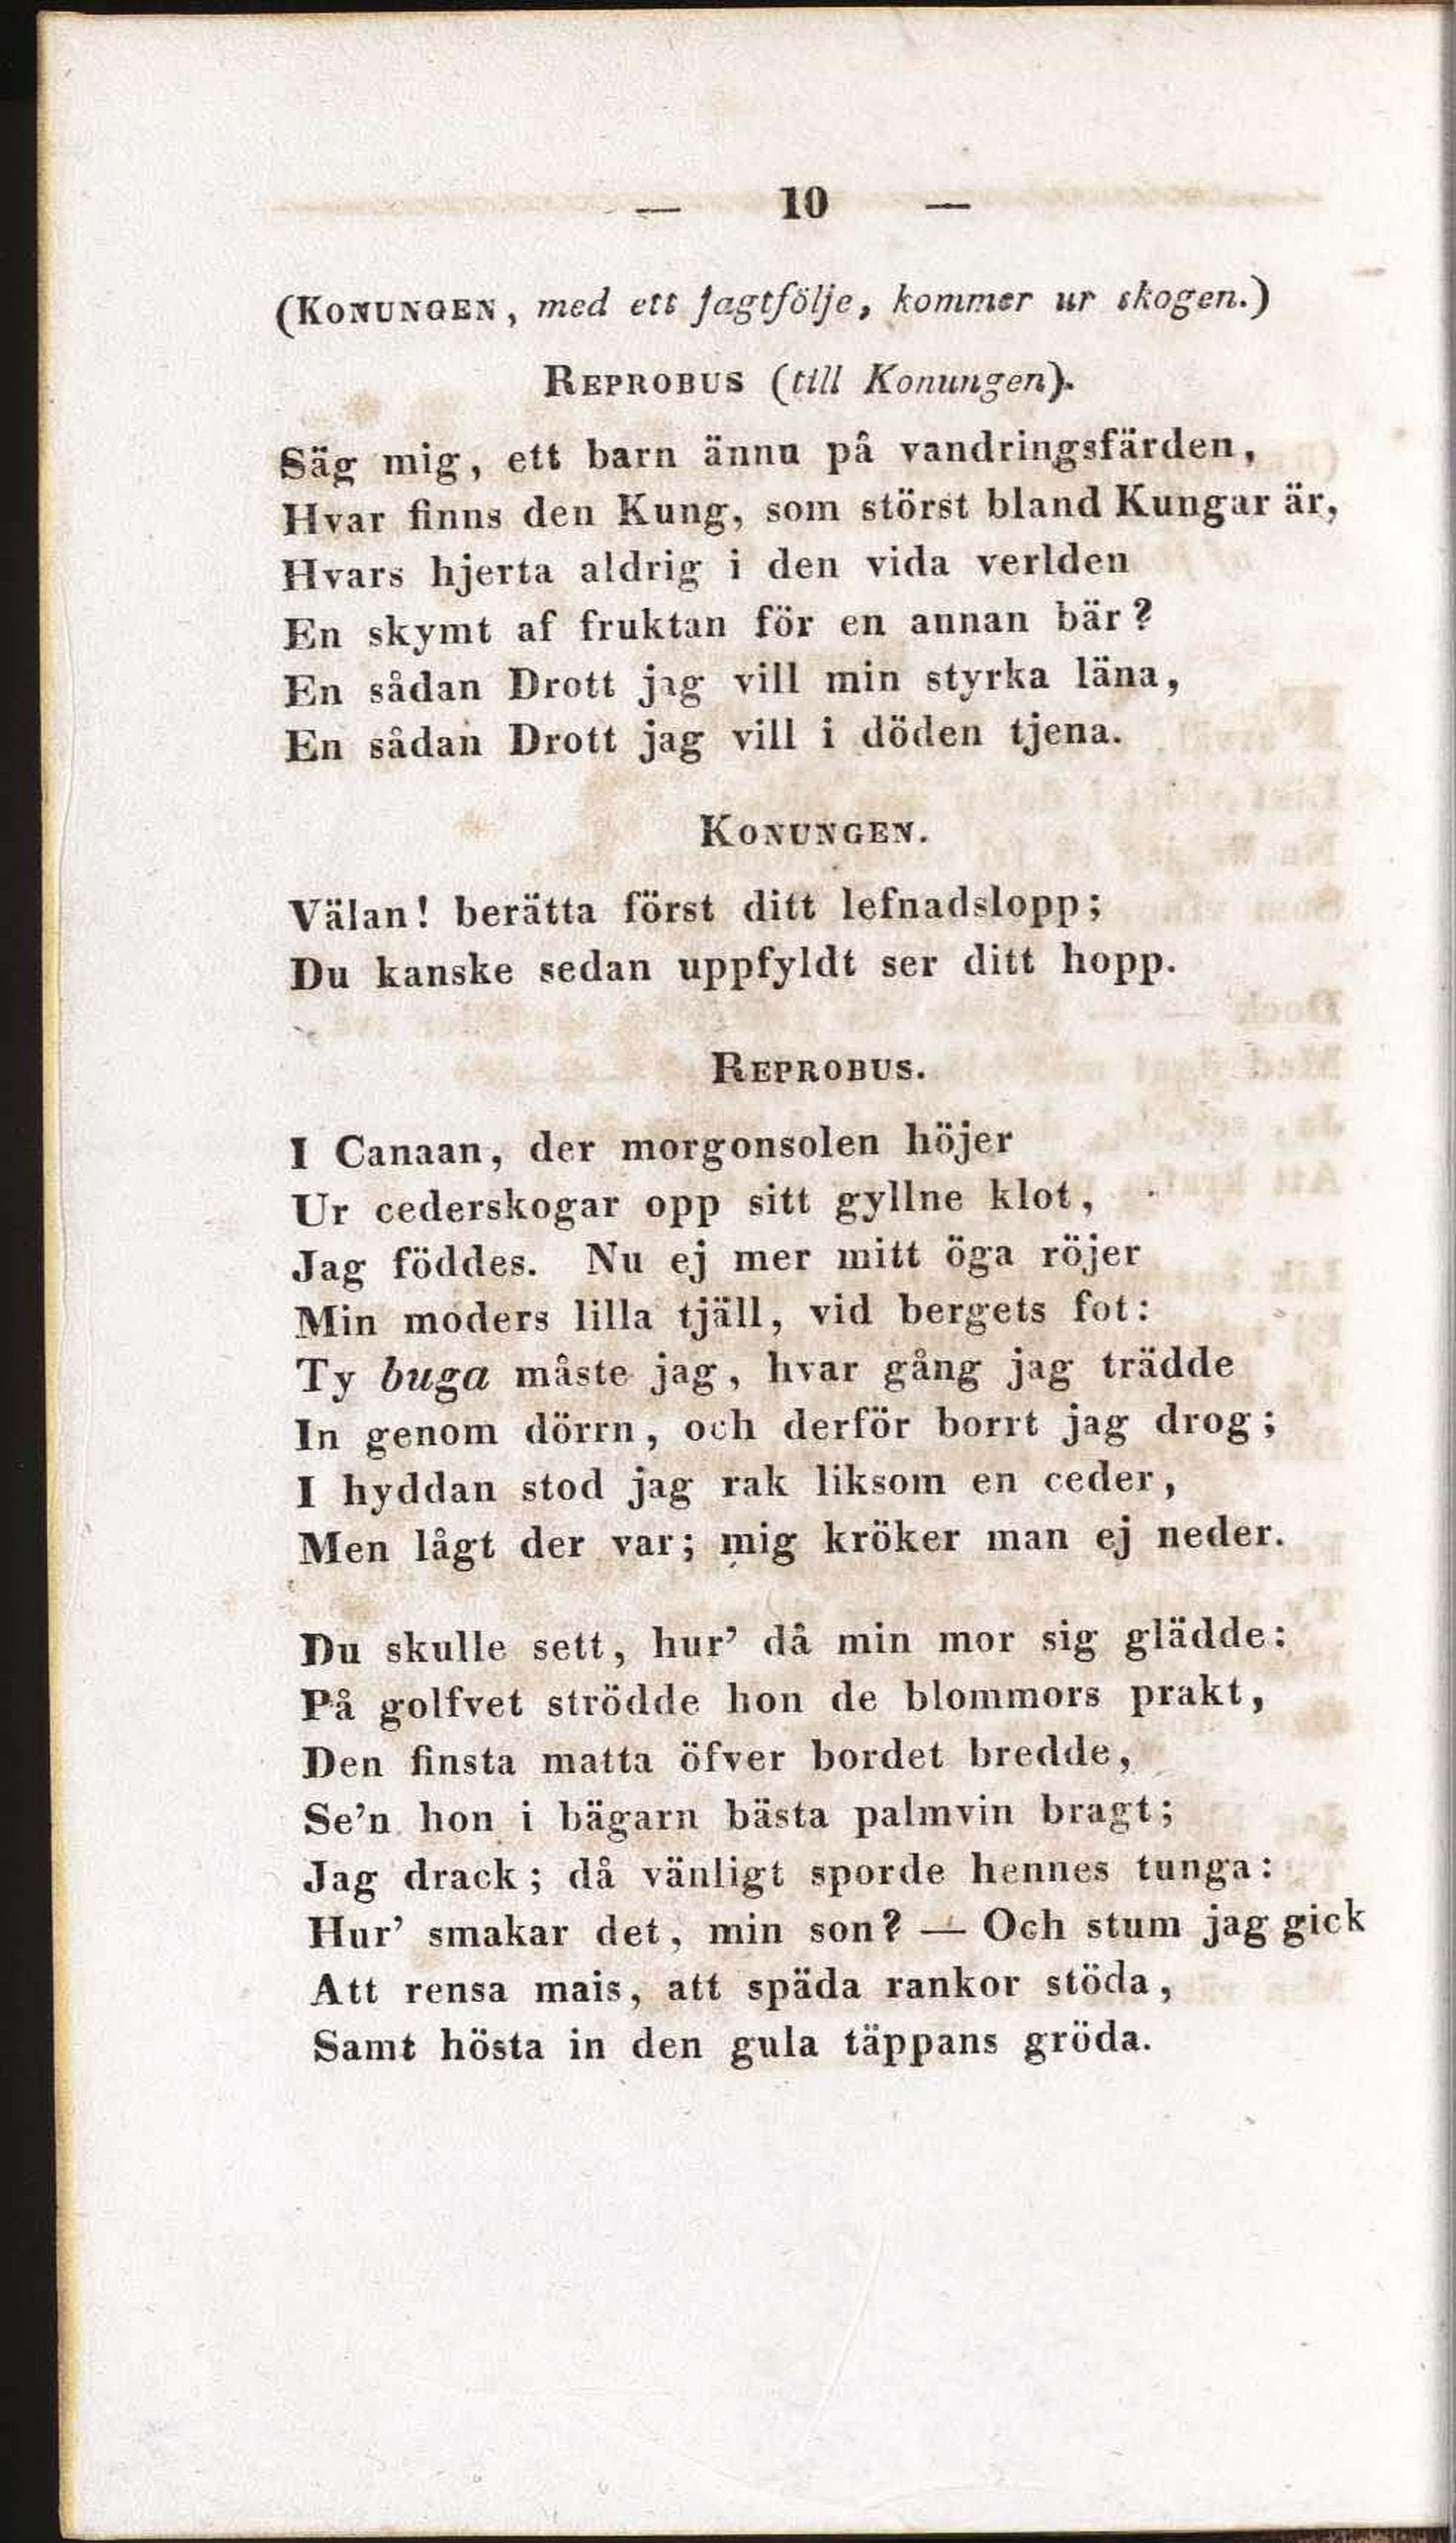 — 10 —
(KONUNGEN, med ett jagtfölje, kommer ur skogen.)
REPROBUS (till Konungen).
Säg mig, ett barn ännu på vandringsfärden,
Hvar finns den Kung, som störst bland Kungar är,
Hvars hjerta aldrig i den vida verlden
En skymt af fruktan för en annan bär?
En sådan Drott jag vill min styrka läna,
En sådan Drott jag vill i döden tjena.
KONUNGEN.
Välan! berätta först ditt lefnadslopp;
Du kanske sedan uppfyldt ser ditt hopp.
REPROBUS.
I Canaan, der morgonsolen höjer
Ur cederskogar opp sitt gyllne klot,
Jag föddes. Nu ej mer mitt öga röjer
Min moders lilla tjäll, vid bergets fot:
Ty buga måste jag, hvar gång jag trädde
In genom dörrn, och derför borrt jag drog;
I hyddan stod jag rak liksom en ceder,
Men lågt der var; mig kröker man ej neder.
Du skulle sett, hur' då min mor sig glädde:
På golfvet strödde hon de blommors prakt,
Den finsta matta öfver bordet bredde,
Se'n hon i bägarn bästa palmvin bragt;
Jag drack; då vänligt sporde hennes tunga:
Hur' smakar det, min son? — Och stum jag gick
Att rensa mais, att späda rankor stöda,
Samt hösta in den gula täppans gröda.